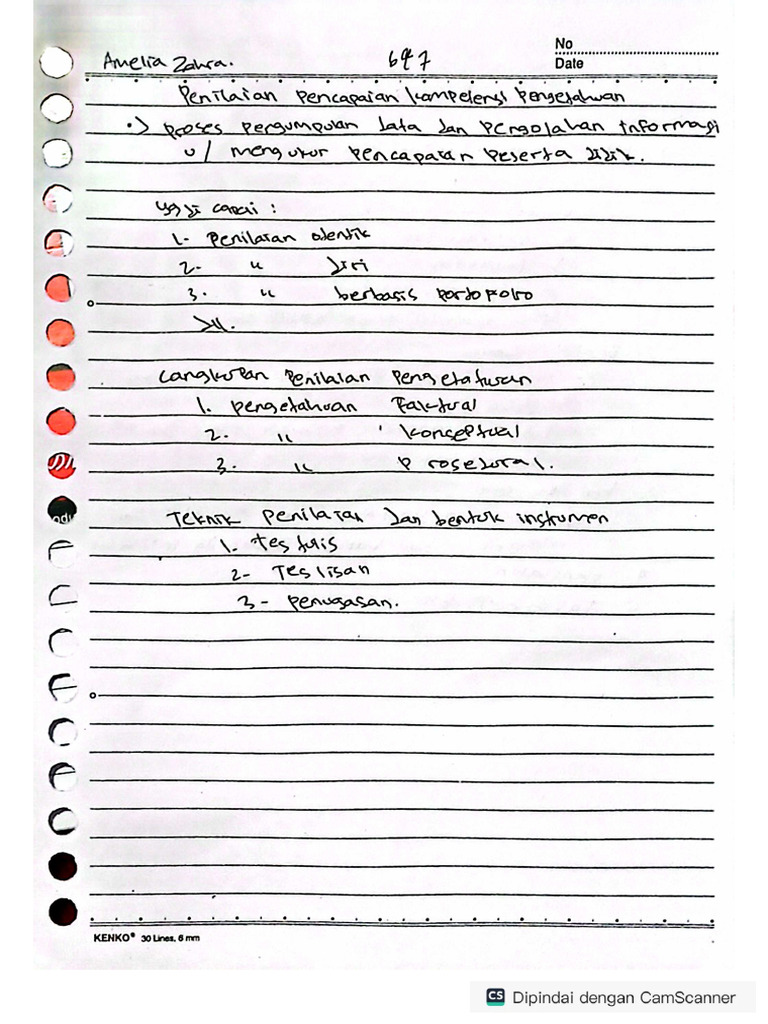 No
Amelia Zahra. 6&7
Date
Penilaian Pencapaian Kompetensi Pengetahuan
•> proses pengumpulan data dan pengolahan informasi
u/ mengukur pencapaian peserta didik.
yg di capai :
1- Penilaian otentik
2- " Diri
3. " berbasis Portofolio
Dll.
Cangkupan Penilaian Pengetahuan
1. pengetahuan Faktual
2. " Konseptual
3. " Prosedural.
Teknik Penilaian dan bentuk instrumen
1. Tes tulis
2- Tes lisan
3- penugasan.
KENKO® 30 Lines, 6 mm
CS Dipindai dengan CamScanner